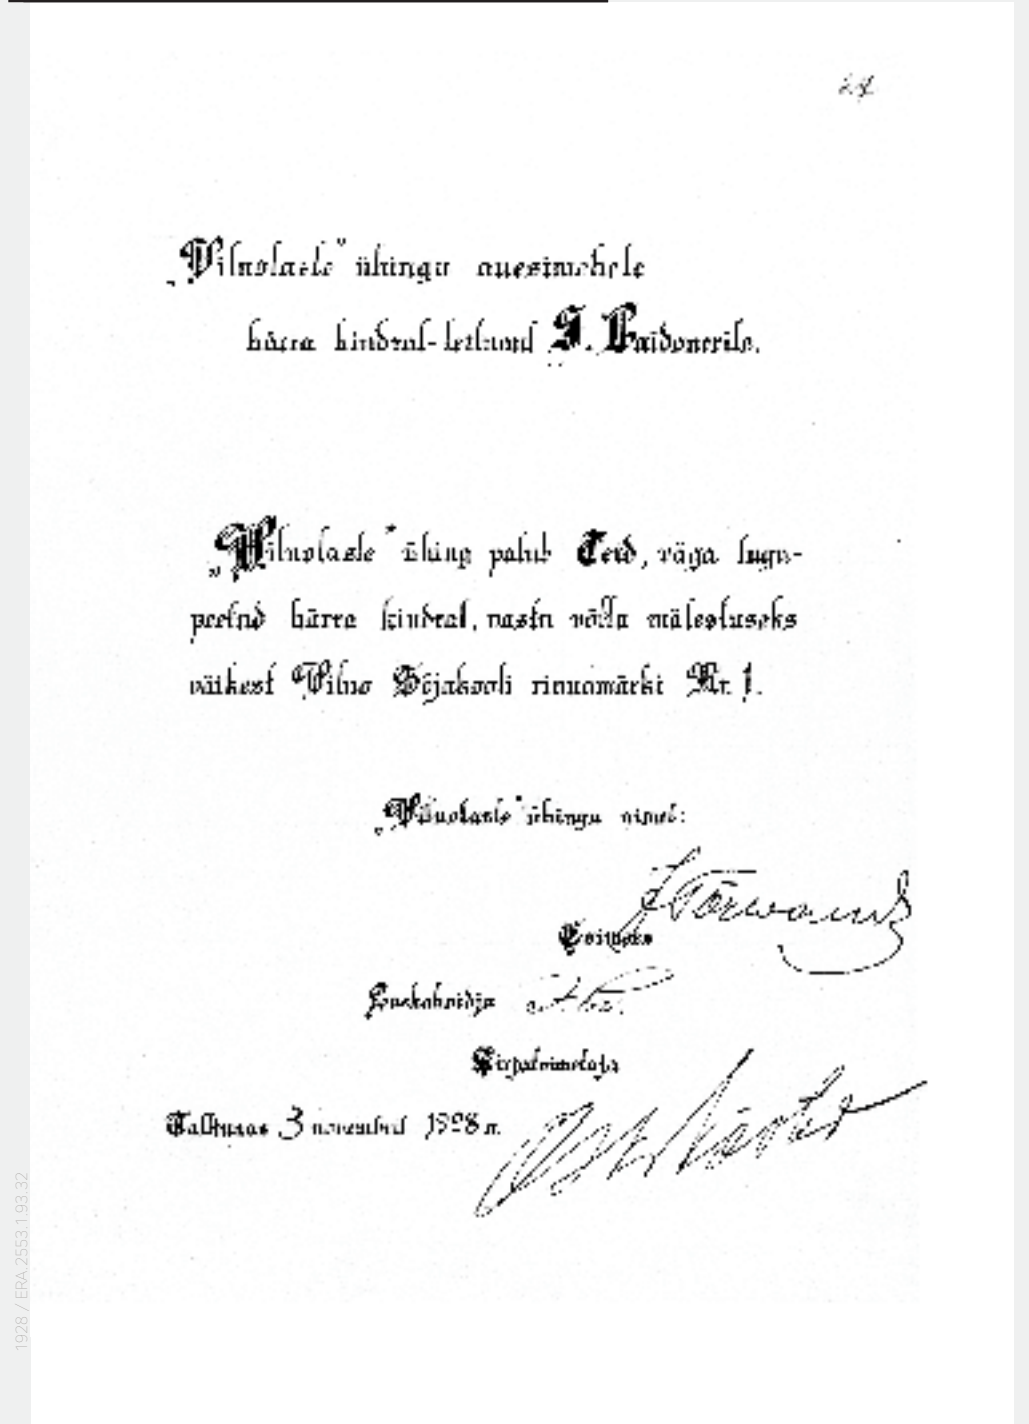 24
„Vilnolaste” ühingu auesimehele
härra kindral-leitnant J. Laidonerile.
„Vilnolaste” ühing palub Teid, väga lugu-
peetud härra kindral, vastu võtta mälestuseks
väikest Vilno Sõjakooli rinnamärki Nr. 1.
„Vilnolaste” ühingu nimel:
Esimees
Laekahoidja
Kirjatoimetaja
Tallinnas 3 novembril 1928 a.
1928 / ERA.2553.1.93.32